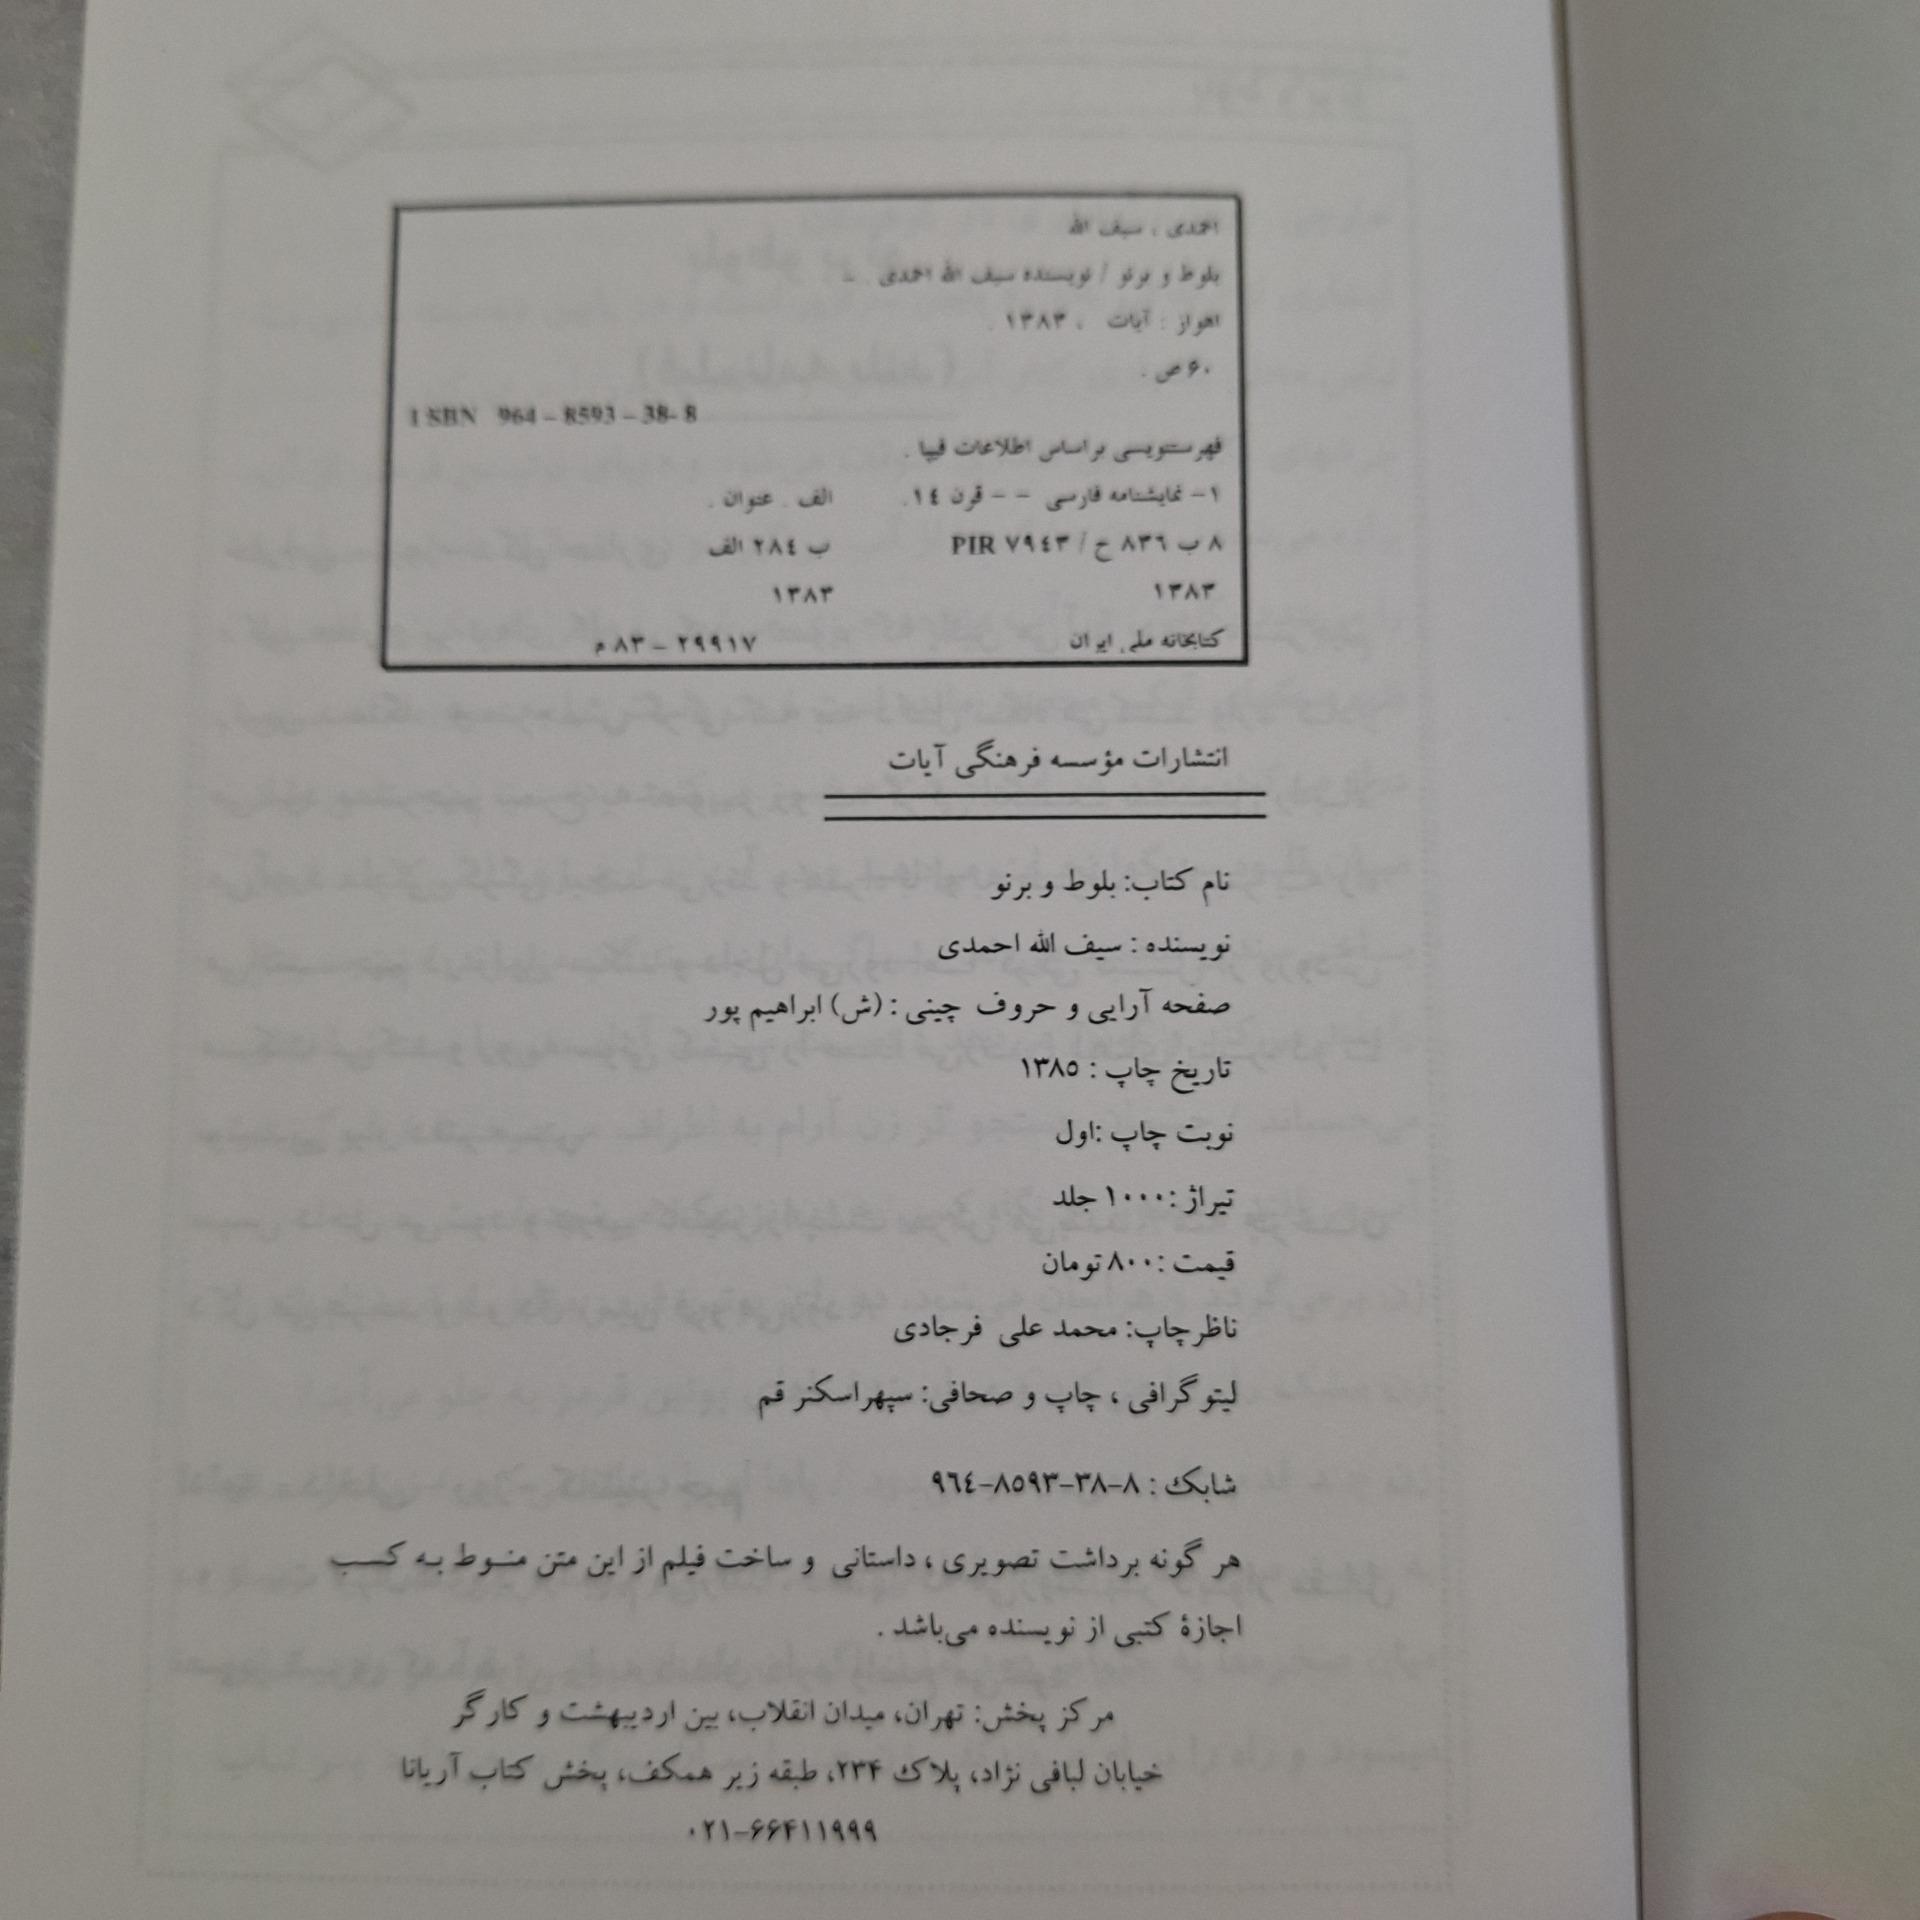 احمدی ، سیف الله
بلوط و برنو / نویسنده سیف الله احمدی . ـ
اهواز : آیات ، ۱۳۸۳ .
۶۰ ص .
ISBN 964 – 8593 – 38- 8
فهرستنویسی براساس اطلاعات فیپا .
۱– نمایشنامه فارسی – – قرن ۱٤. الف . عنوان .
۸ ب ۸۳٦ ح / PIR ۷۹٤۳ ب ۲۸٤ الف
۱۳۸۳ ۱۳۸۳
کتابخانه ملی ایران ۲۹۹۱۷ – ۸۳ م
انتشارات مؤسسه فرهنگی آیات
نام کتاب: بلوط و برنو
نویسنده : سیف الله احمدی
صفحه آرایی و حروف چینی : (ش) ابراهیم پور
تاریخ چاپ : ۱۳۸۵
نوبت چاپ :اول
تیراژ :۱۰۰۰ جلد
قیمت :۸۰۰ تومان
ناظرچاپ: محمد علی فرجادی
لیتوگرافی ، چاپ و صحافی: سپهراسکنر قم
شابک : ۸-۳۸-۸۵۹۳-۹٦٤
هر گونه برداشت تصویری ، داستانی و ساخت فیلم از این متن منـوط بـه کسـب
اجازهٔ کتبی از نویسنده می‌باشد .
مرکز پخش: تهران، میدان انقلاب، بین اردیبهشت و کارگر
خیابان لبافی نژاد، پلاک ۲۳۴، طبقه زیر همکف، پخش کتاب آریانا
۰۲۱-۶۶۴۱۱۹۹۹